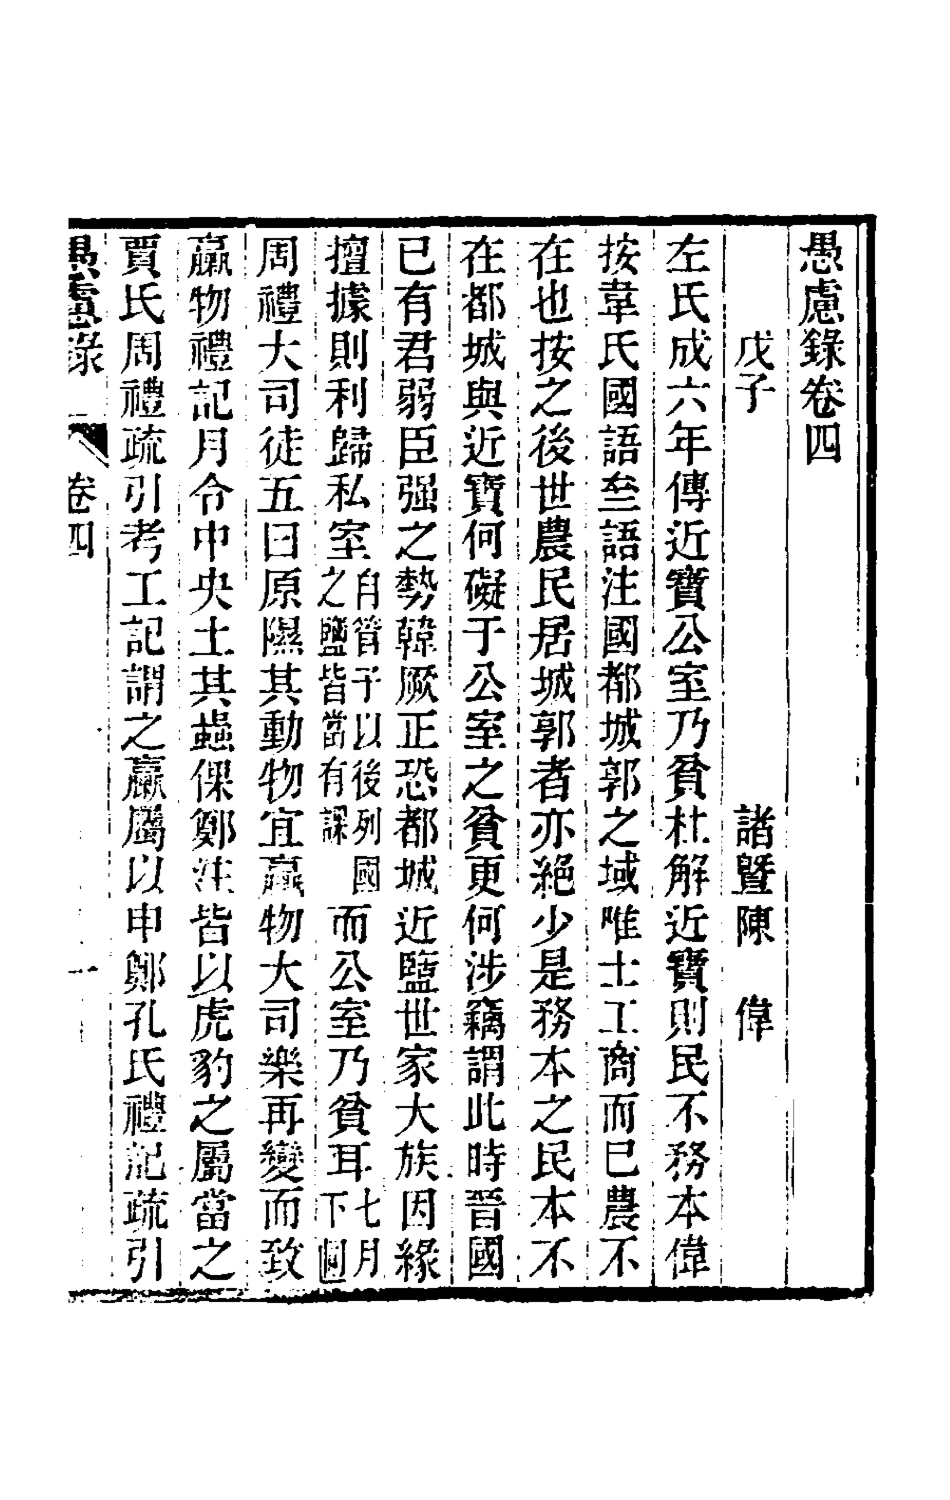 愚慮錄卷四
戊子　諸暨陳　偉
左氏成六年傳近寶公室乃貧杜解近寶則民不務本偉
按韋氏國語叁語注國都城郭之域唯士工商而已農不
在也按之後世農民居城郭者亦絕少是務本之民本不
在都城與近寶何礙于公室之貧更何涉竊謂此時晉國
已有君弱臣强之勢韓厥正恐都城近鹽世家大族因緣
擅據則利歸私室自管子以後列國之鹽皆當有課而公室乃貧耳七月下
周禮大司徒五曰原隰其動物宜臝物大司樂再變而致
臝物禮記月令中央土其蟲倮鄭注皆以虎豹之屬當之
賈氏周禮疏引考工記謂之臝屬以申鄭孔氏禮記疏引
愚慮錄　卷四　一